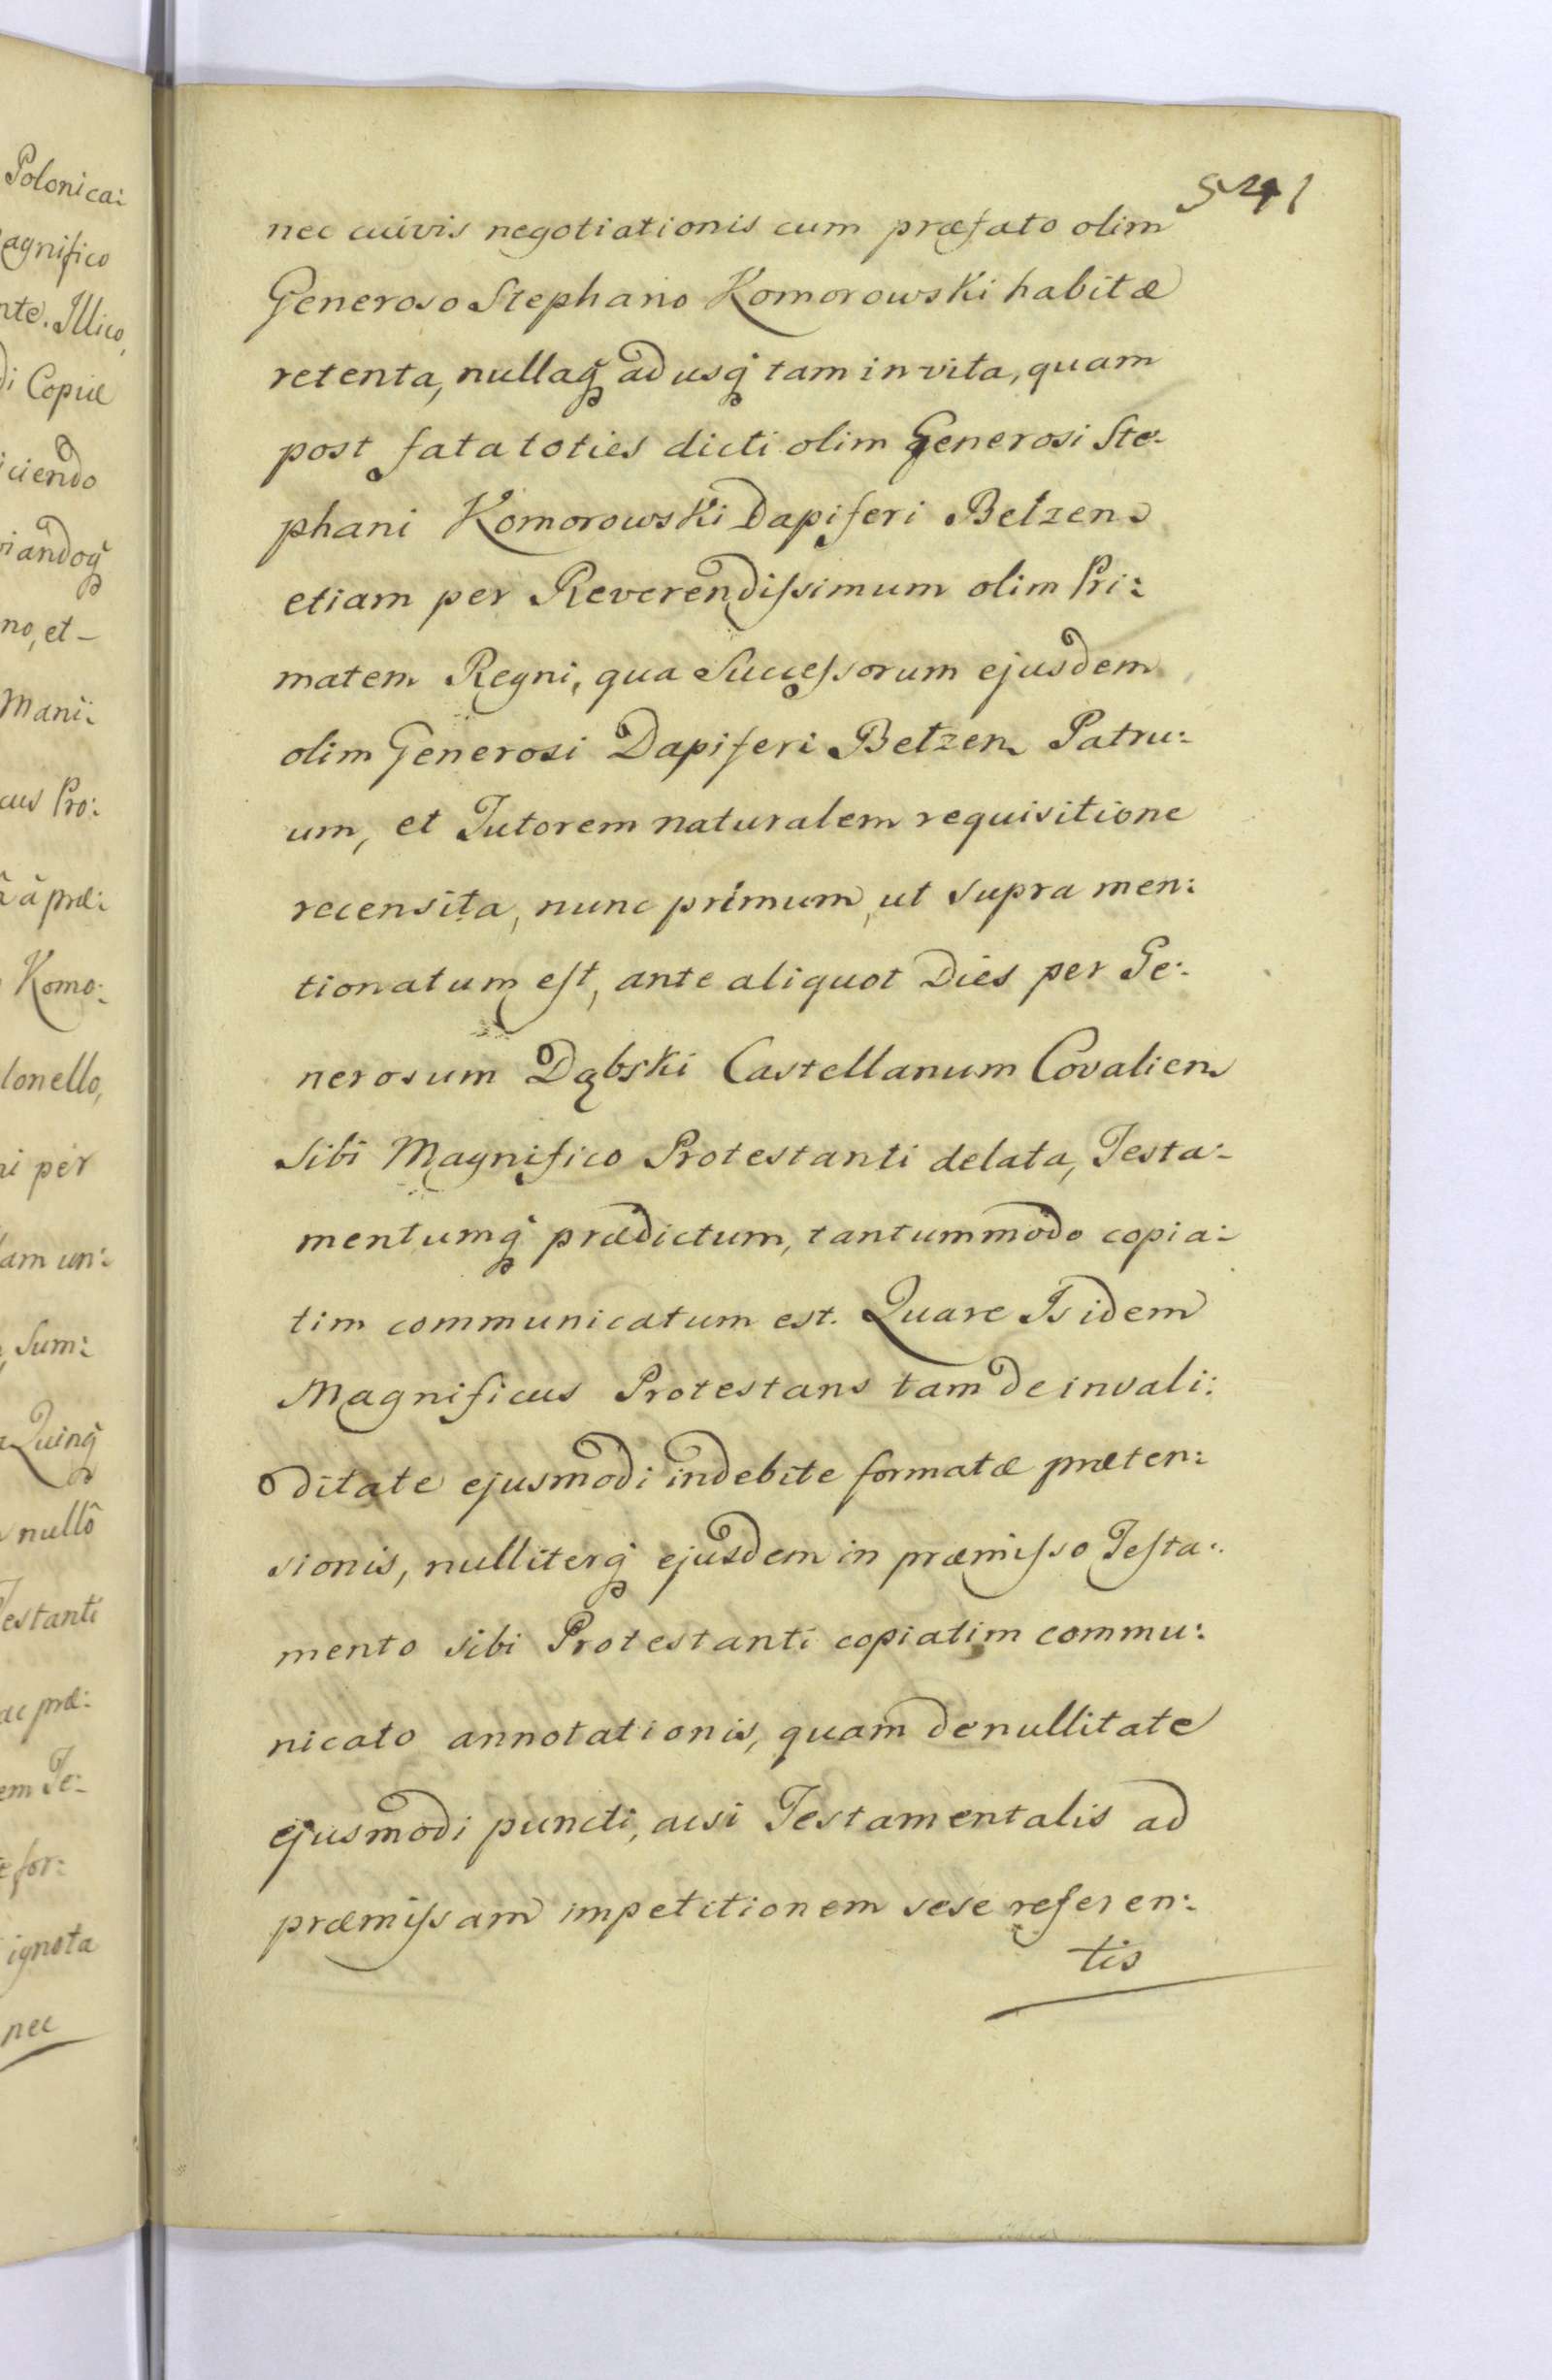 Polonica:
agnifico
nte. Illico,
di Copiæ
iciendo
viandoq̃
no, et -
Mani:
cus Pro:
â â præ:
Komo:
lonello,
ni per
am un:
Sum:
Quinq̃
nullô
Testanti
ac præ:
em Te:
e for:
ignota
nec
541
nec cuivis negotiationis cum præfato olim
Generoso Stephano Komorowski habitæ
retenta, nullaq̃ ad usq̃ tam in vita, quam
post fata toties dicti olim Generosi Ste:
phani Komorowski Dapiferi Betzen
etiam per Reverendissimum olim Pri:
matem Regni, qua Successorum ejusdem
olim Generosi Dapiferi Betzen Patru:
um, et Tutorem naturalem requisitione
recensita, nunc primum, ut supra men:
tionatum est, ante aliquot Dies per Ge:
nerosum Dąbski Castellanum Covalien
sibi Magnifico Protestanti delata, Testa:
mentumq̃ prædictum, tantummodo copia:
tim communicatum est. Quare Is idem
Magnificus Protestans tam de invali:
ditate ejusmodi indebite formatæ præten:
sionis, nulliterq̃ ejusdem in præmisso Testa:
mento sibi Protestanti copiatim commu:
nicato annotationis, quam de nullitate
ejusmodi puncti, acsi Testamentalis ad
præmissam impetitionem sese referen:
tis